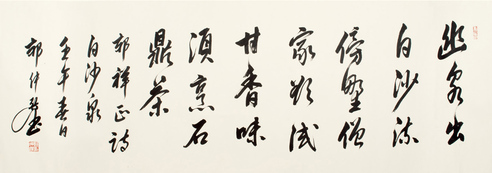 幽泉出
白沙流
傍野僧
家欲試
甘香味
須烹石
鼎茶
郭祥正詩
白沙泉
壬午春日
郭仲選